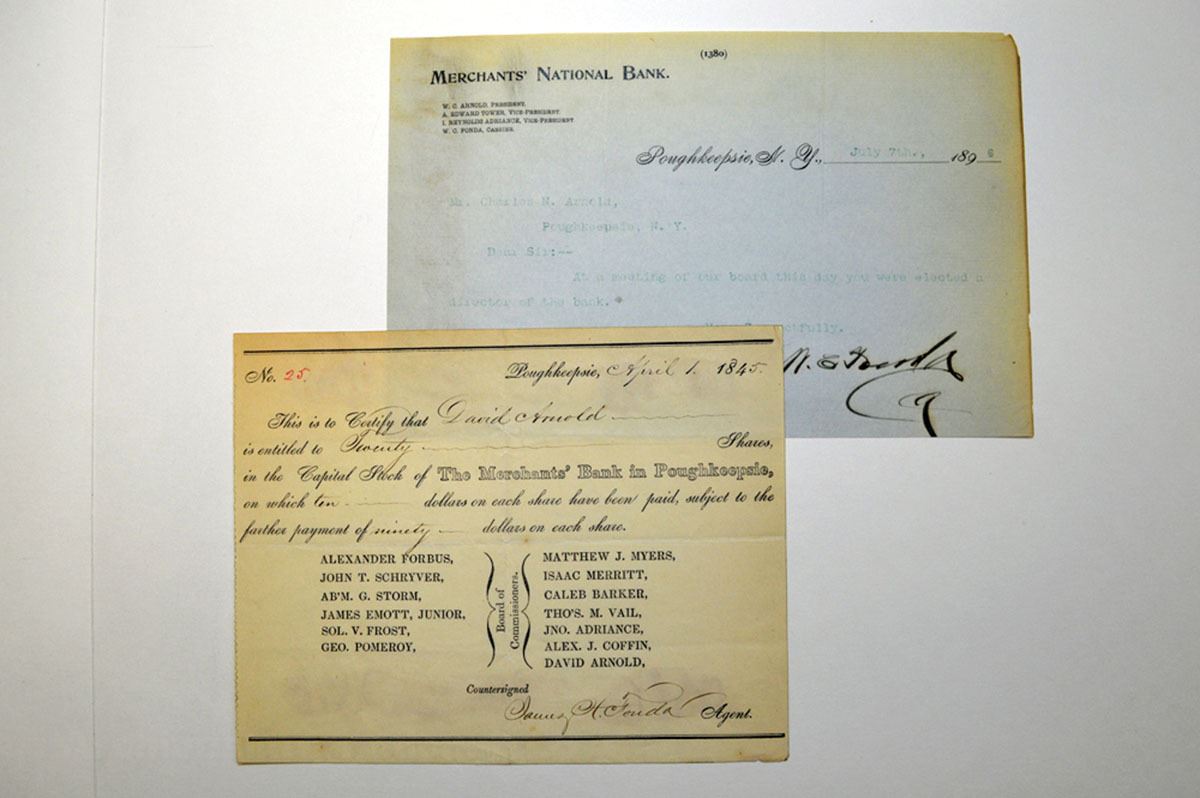 (1380)
MERCHANTS' NATIONAL BANK.
W. C. ARNOLD, PRESIDENT.
A. EDWARD TOWER, VICE-PRESIDENT.
I. REYNOLDS ADRIANCE, VICE-PRESIDENT
W. C. FONDA, CASHIER.
Poughkeepsie, N. Y., July 7th., 1896
Mr. Charles N. Arnold,
Poughkeepsie, N. Y.
Dear Sir:--
At a meeting of our board this day you were elected a
director of the bank.
No. 25. Poughkeepsie, April 1. 1845.
This is to Certify that David Arnold
is entitled to Twenty Shares,
in the Capital Stock of The Merchants' Bank in Poughkeepsie,
on which ten dollars on each share have been paid, subject to the
farther payment of ninety dollars on each share.
ALEXANDER FORBUS,
JOHN T. SCHRYVER,
AB'M. G. STORM,
JAMES EMOTT, JUNIOR,
SOL. V. FROST,
GEO. POMEROY,
Board of
Commissioners.
MATTHEW J. MYERS,
ISAAC MERRITT,
CALEB BARKER,
THO'S. M. VAIL,
JNO. ADRIANCE,
ALEX. J. COFFIN,
DAVID ARNOLD,
Countersigned
James H. Fonda Agent.